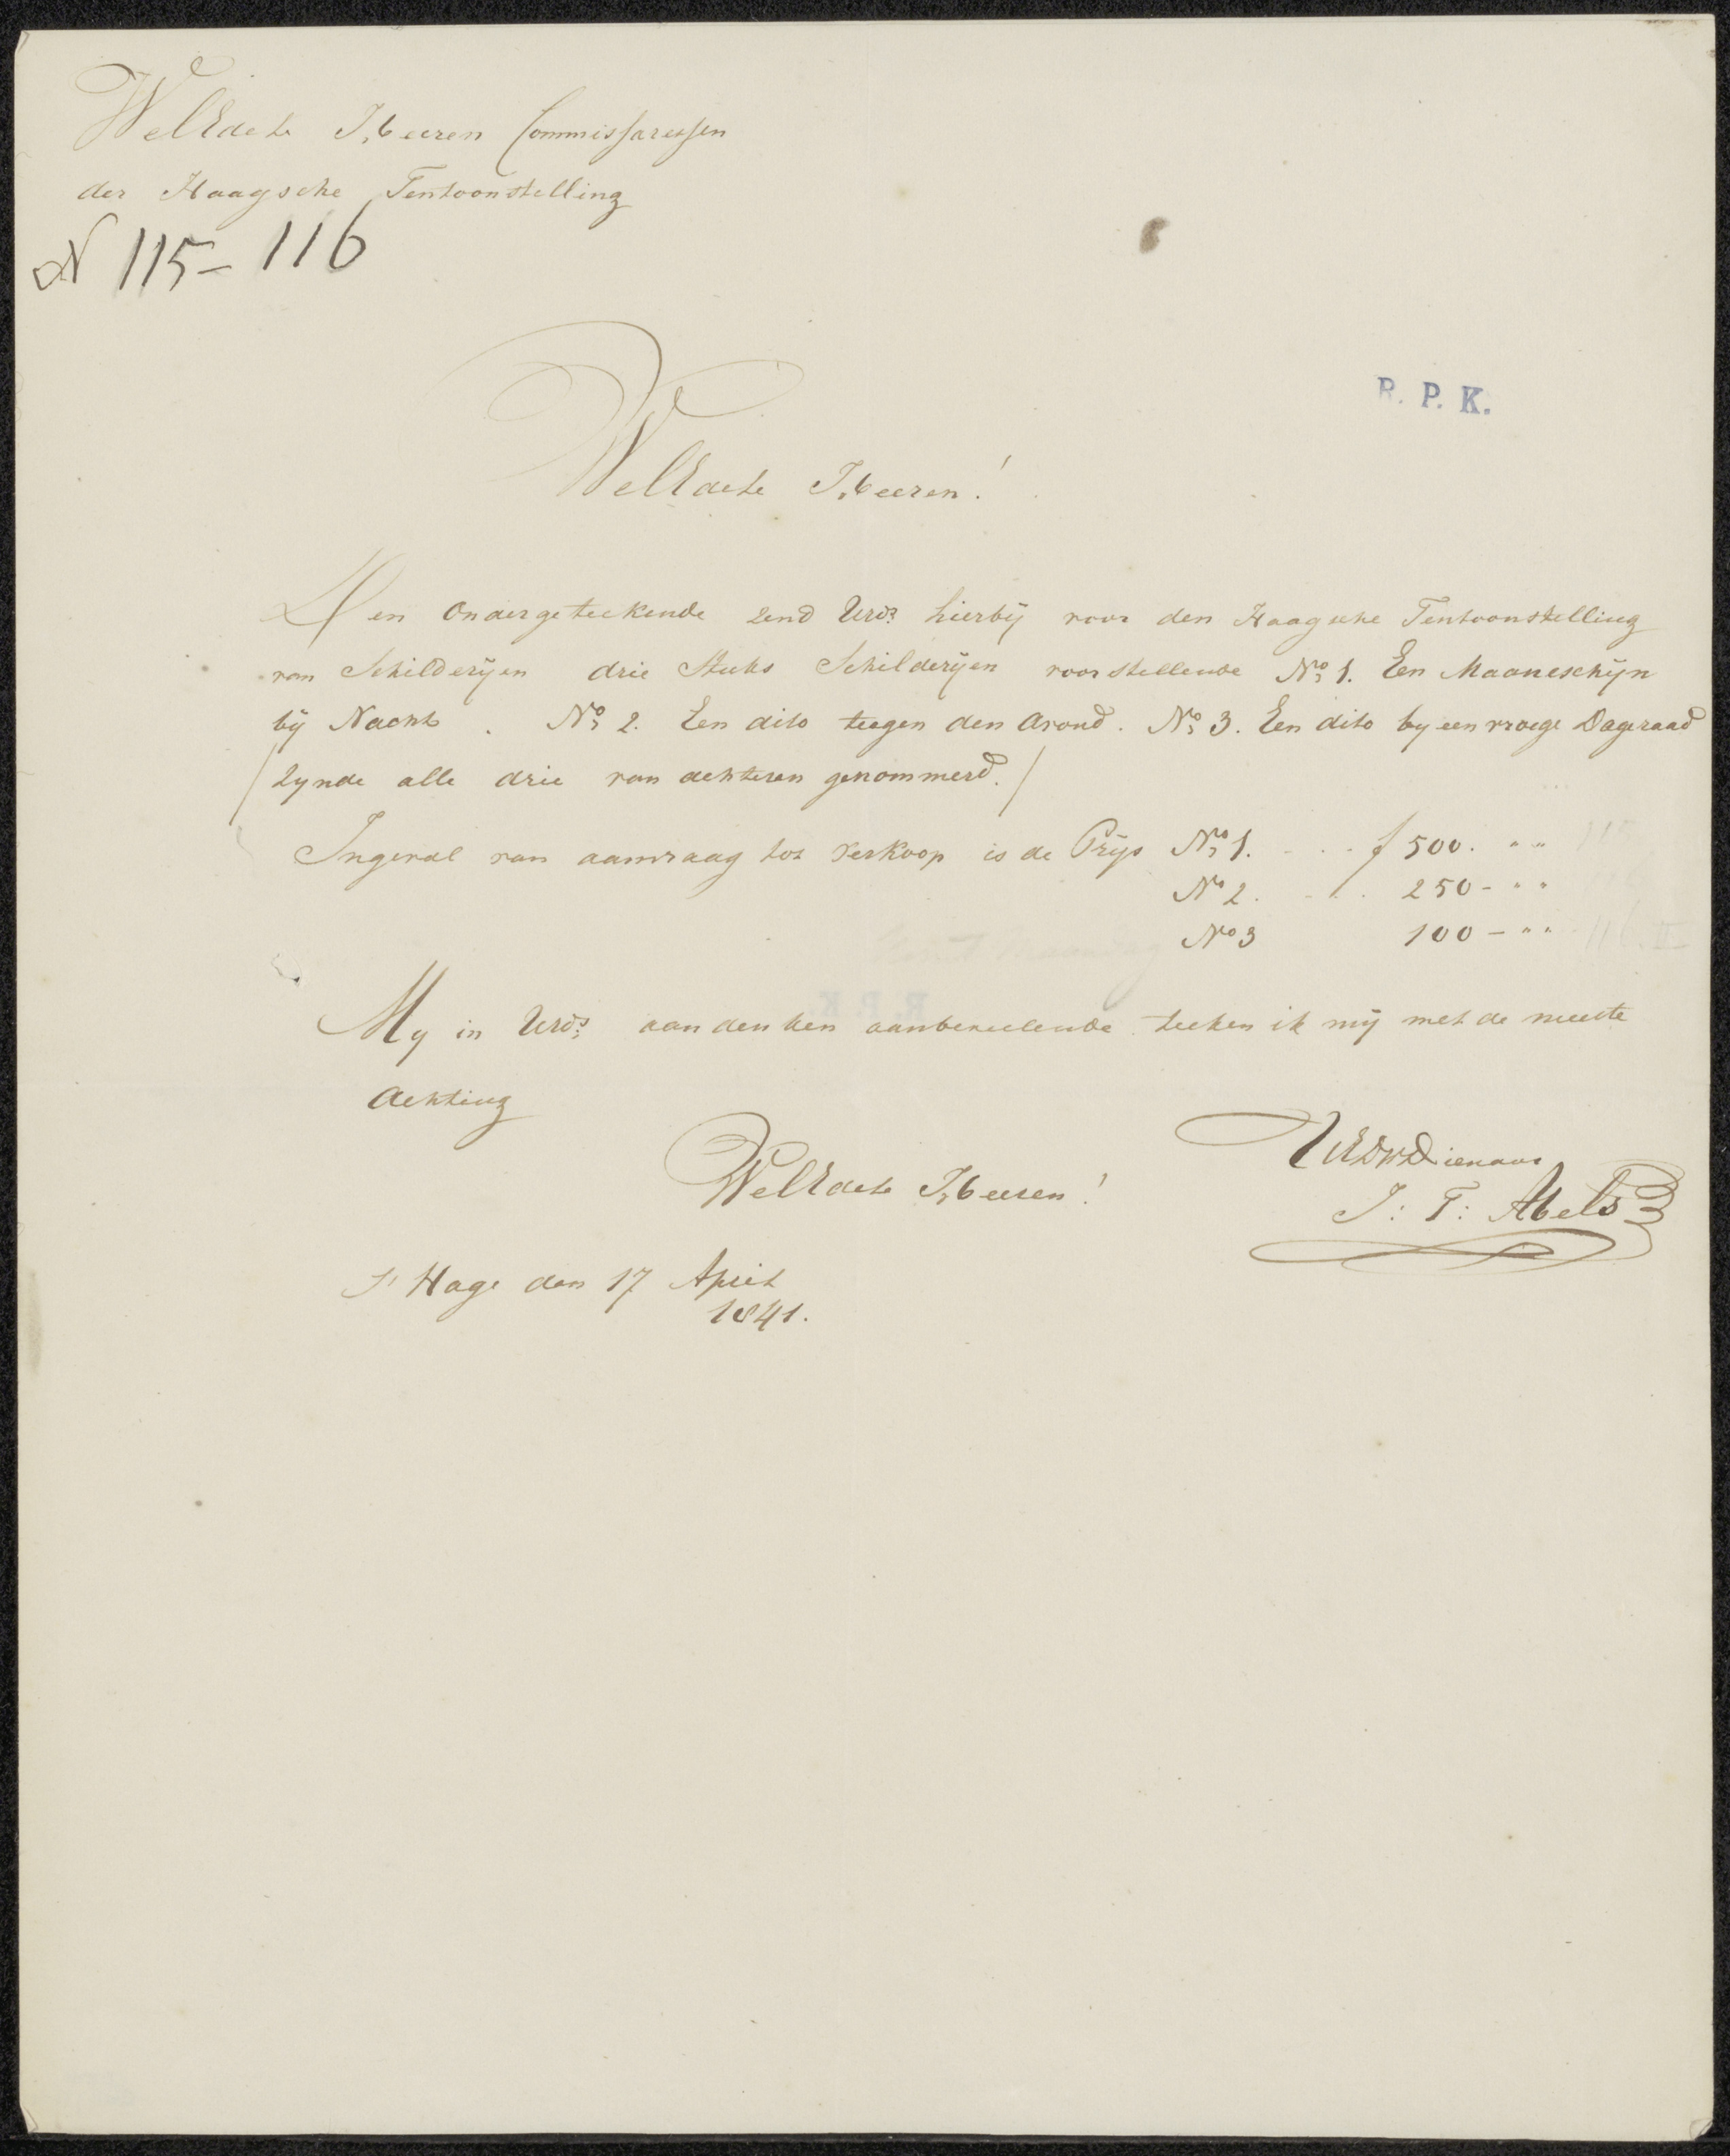 WelEdele Heeren Commissaressen
der Haagsche Tentoonstelling
N 115-116
R. P. K.
WelEdele Heeren!
Den Ondergeteekende zend UwEd. hierbij voor den Haagsche Tentoonstelling
van Schilderijen drie Stuks Schilderijen voorstellende No 1. Een Maaneschijn
bij Nacht. No 2. Een dito teegen den Avond. No 3. Een dito by een vroege Dageraad
/zynde alle drie van achteren genommerd./
Ingeval van aanvraag tot verkoop is de Prijs No 1. . . . ƒ 500. " "
No 2. . . . 250 - " "
No 3 100 - " "
My in aandenken aanbeveelende teeken ik mij met de meeste
Achting
WelEdele Heeren!
UEDWDienaar
J: T: Abels
S' Hage den 17 April
1841.